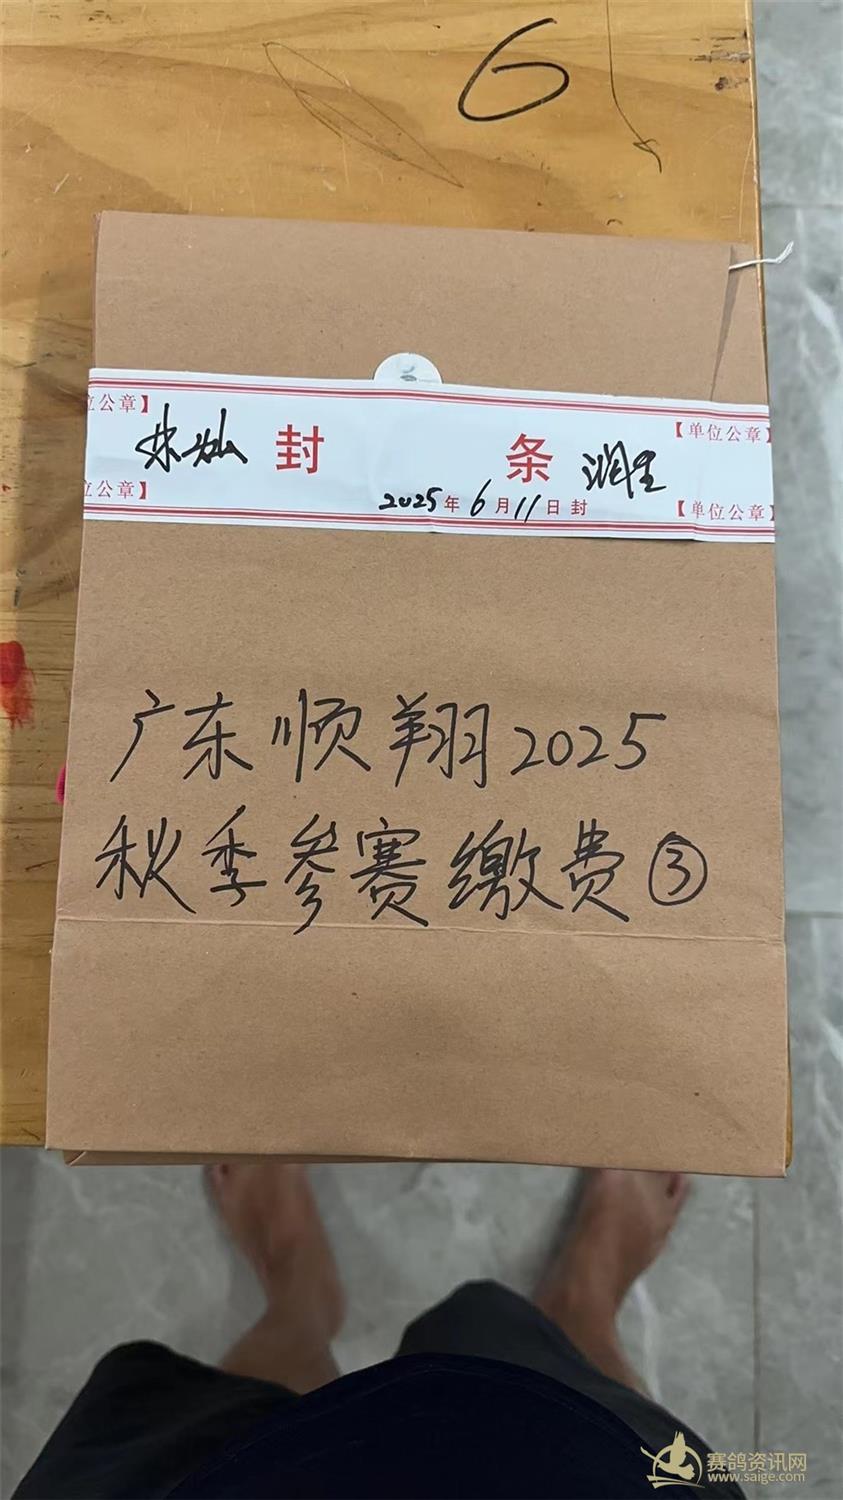 6
位公章】
【单位公章】
封 条
位公章】
2025年6月11日封
【单位公章】
广东顺翔2025
秋季参赛缴费③
赛鸽资讯网
www.saige.com